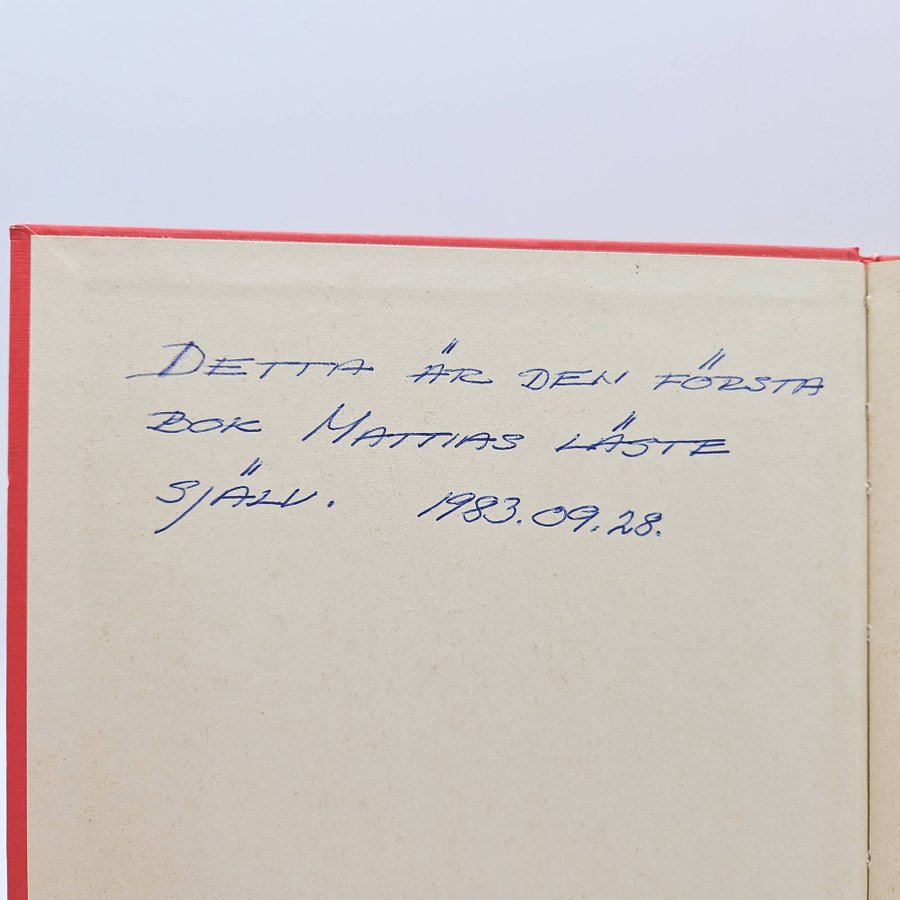 DETTA ÄR DEN FÖRSTA
BOK MATTIAS LÄSTE
SJÄLV. 1983.09.28.